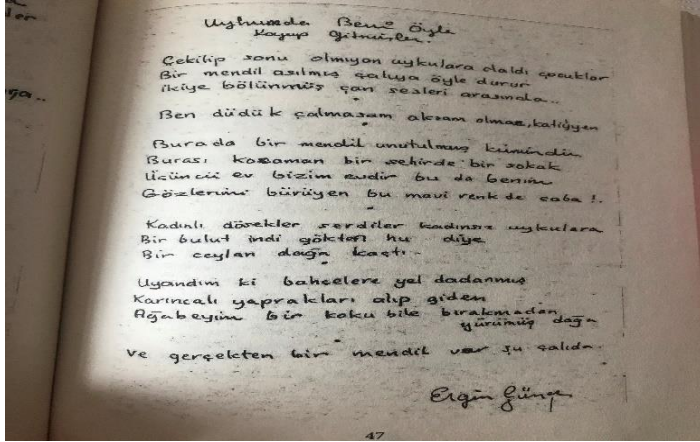 ler
ığa..
Uykumda Beni Öyle
Koyup Gitmişler.
Çekilip sonu olmıyan uykulara daldı çocuklar
Bir mendil asılmış çalıya öyle durur
ikiye bölünmüş çan sesleri arasında..
Ben düdük çalmasam akşam olmaz, katiyyen
Burada bir mendil unutulmuş kimindir
Burası kocaman bir şehirde bir sokak
Üçüncü ev bizim evdir bu da benim
Gözlerimi bürüyen bu mavi renk de caba !.
Kadınlı döşekler serdiler kadınsız uykulara
Bir bulut indi gökten hu diye
Bir ceylan dağa kaçtı.
Uyandım ki bahçelere yel dadanmış
Karıncalı yaprakları alıp giden
Ağabeyim bir koku bile bırakmadan
yürümüş dağa
ve gerçekten bir mendil var şu çalıda.
Ergin Günçe
47